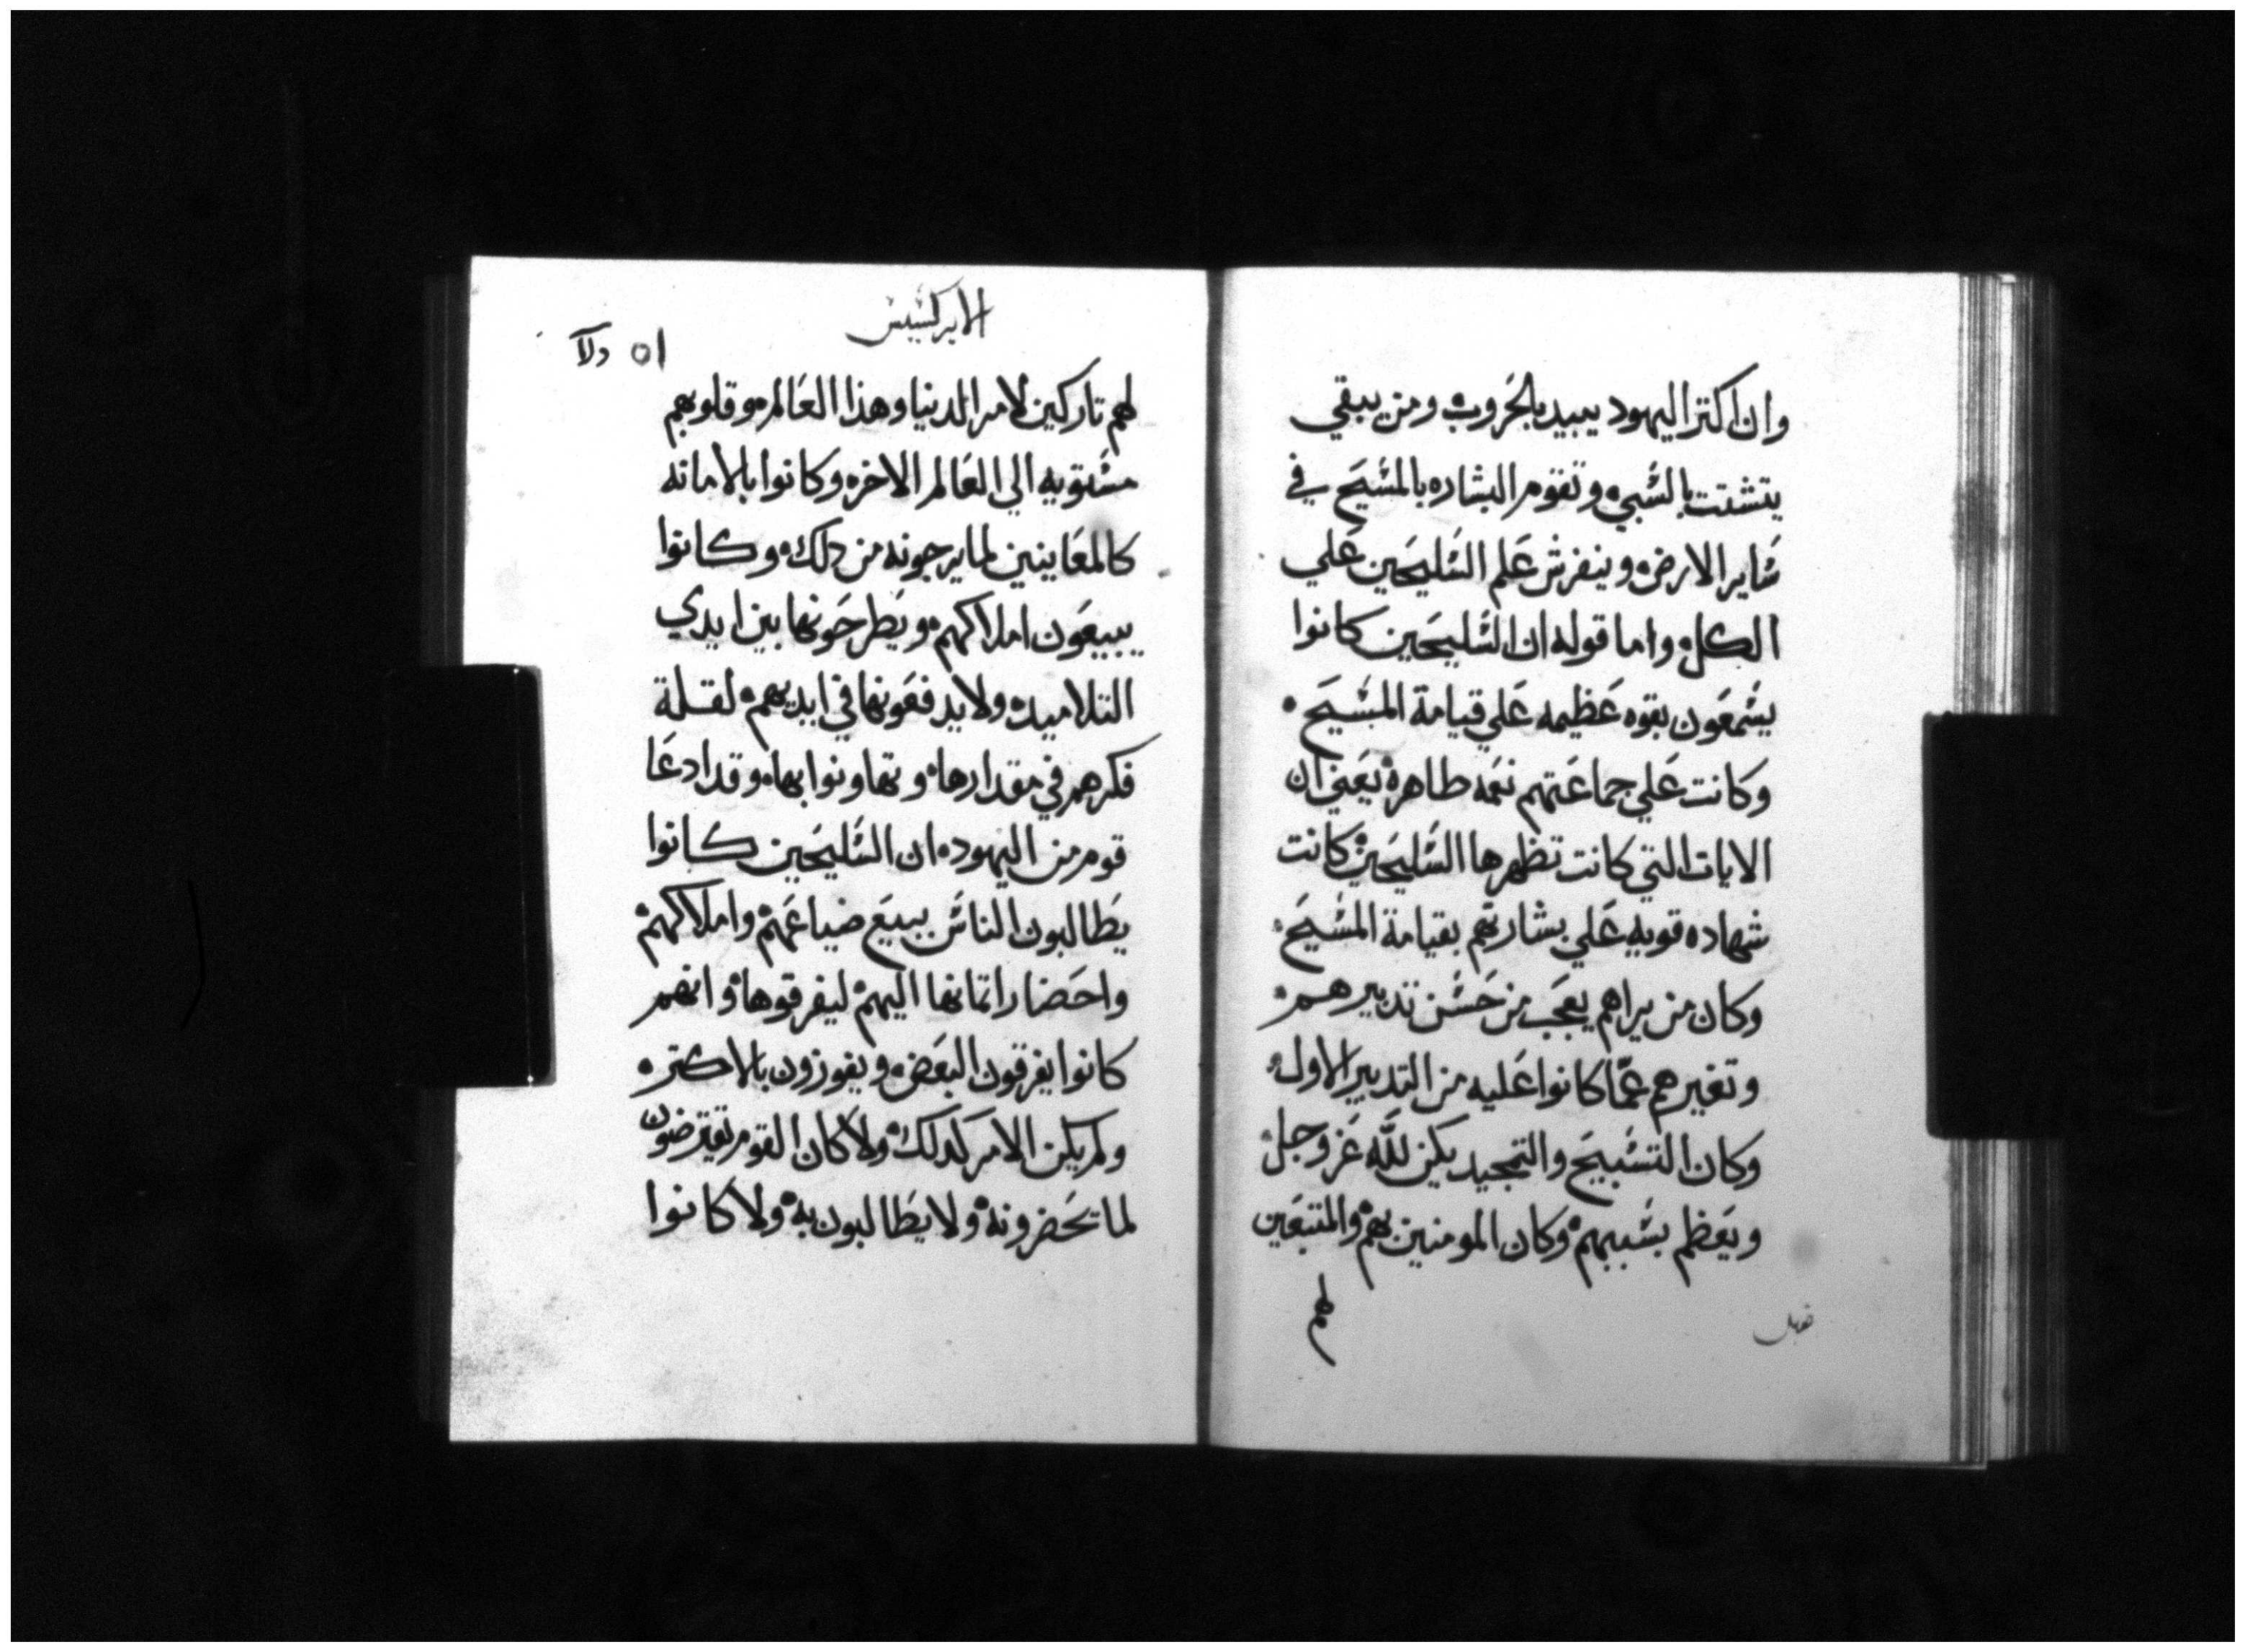 وان اكتر اليهود يبيد بالحروب ومن يبقي
يتشتت بالسبي وتقوم البشاره بالمسيح في
ساير الارض وينفرش علم السليحين علي
الكل واما قوله ان السليحين كانوا
يشمعون بقوه عظيمه علي قيامة المسيح
وكانت علي جماعتهم نعمه طاهره يعني ان
الايات التي كانت تظهرها السليحين كانت
شهاده قويه علي بشارتهم بقيامة المسيح
وكان من يراهم يعجب من حسن تدبيرهم
وتغيرهم عما كانوا عليه من التدبير الاول
وكان التسبيح والتمجيد يكن لله عز وجل
ويعظم بسببهم وكان المومنين بهم والمتبعين
لهم
الابركسيس
٥١
لهم تاركين لامر الدنيا وهذا العالم وقلوبهم
مستويه الي العالم الاخر وكانوا بالامانه
كالمعاينين لما يرجونه من دلك وكانوا
يبيعون املاكهم ويطرحونها بين ايدي
التلاميد ولا يدفعونها في ايديهم لقلة
فكرهم في مقدارها وتهاونوا بها وقد ادعا
قوم من اليهود ان السليحين كانوا
يطالبون الناس ببيع ضياعهم واملاكهم
واحضار اتمانها اليهم ليفرقوها وانهم
كانوا يفرقون البعض ويفوزون بالاكتر
ولم يكن الامر كدلك ولا كان القوم يتعرضون
لما تحضرونه ولا يطالبون به ولا كانوا